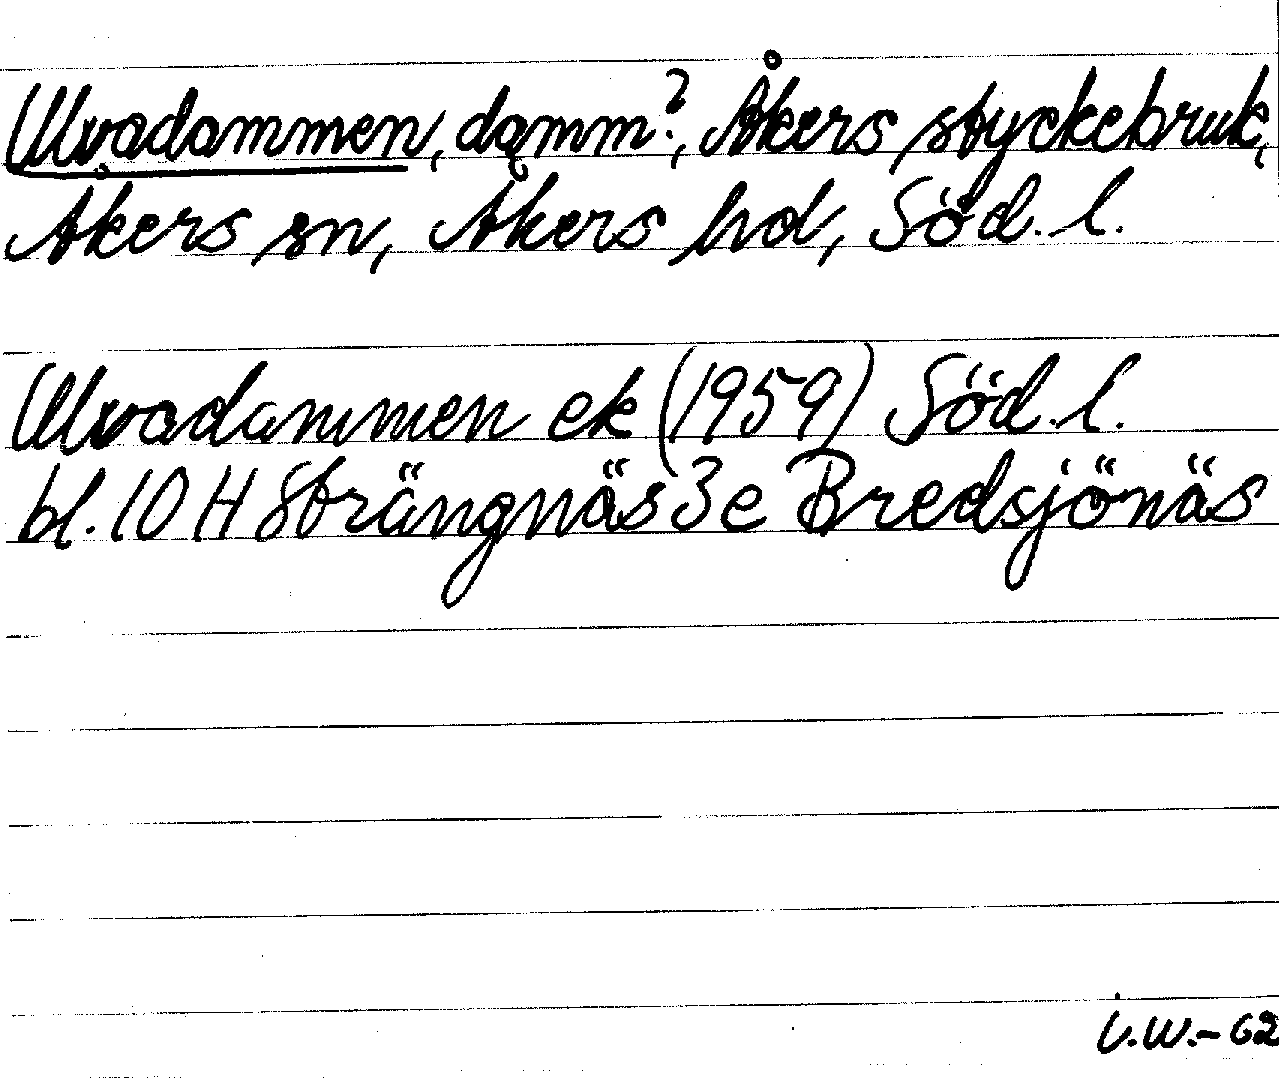 Ulvadammen, damm?, Åkers styckebruk,
Åkers sn, Åkers hd, Söd. l.
Ulvadammen ek (1959) Söd. l.
bl. 10 H Strängnäs 3 e Bredsjönäs
i.w.-62